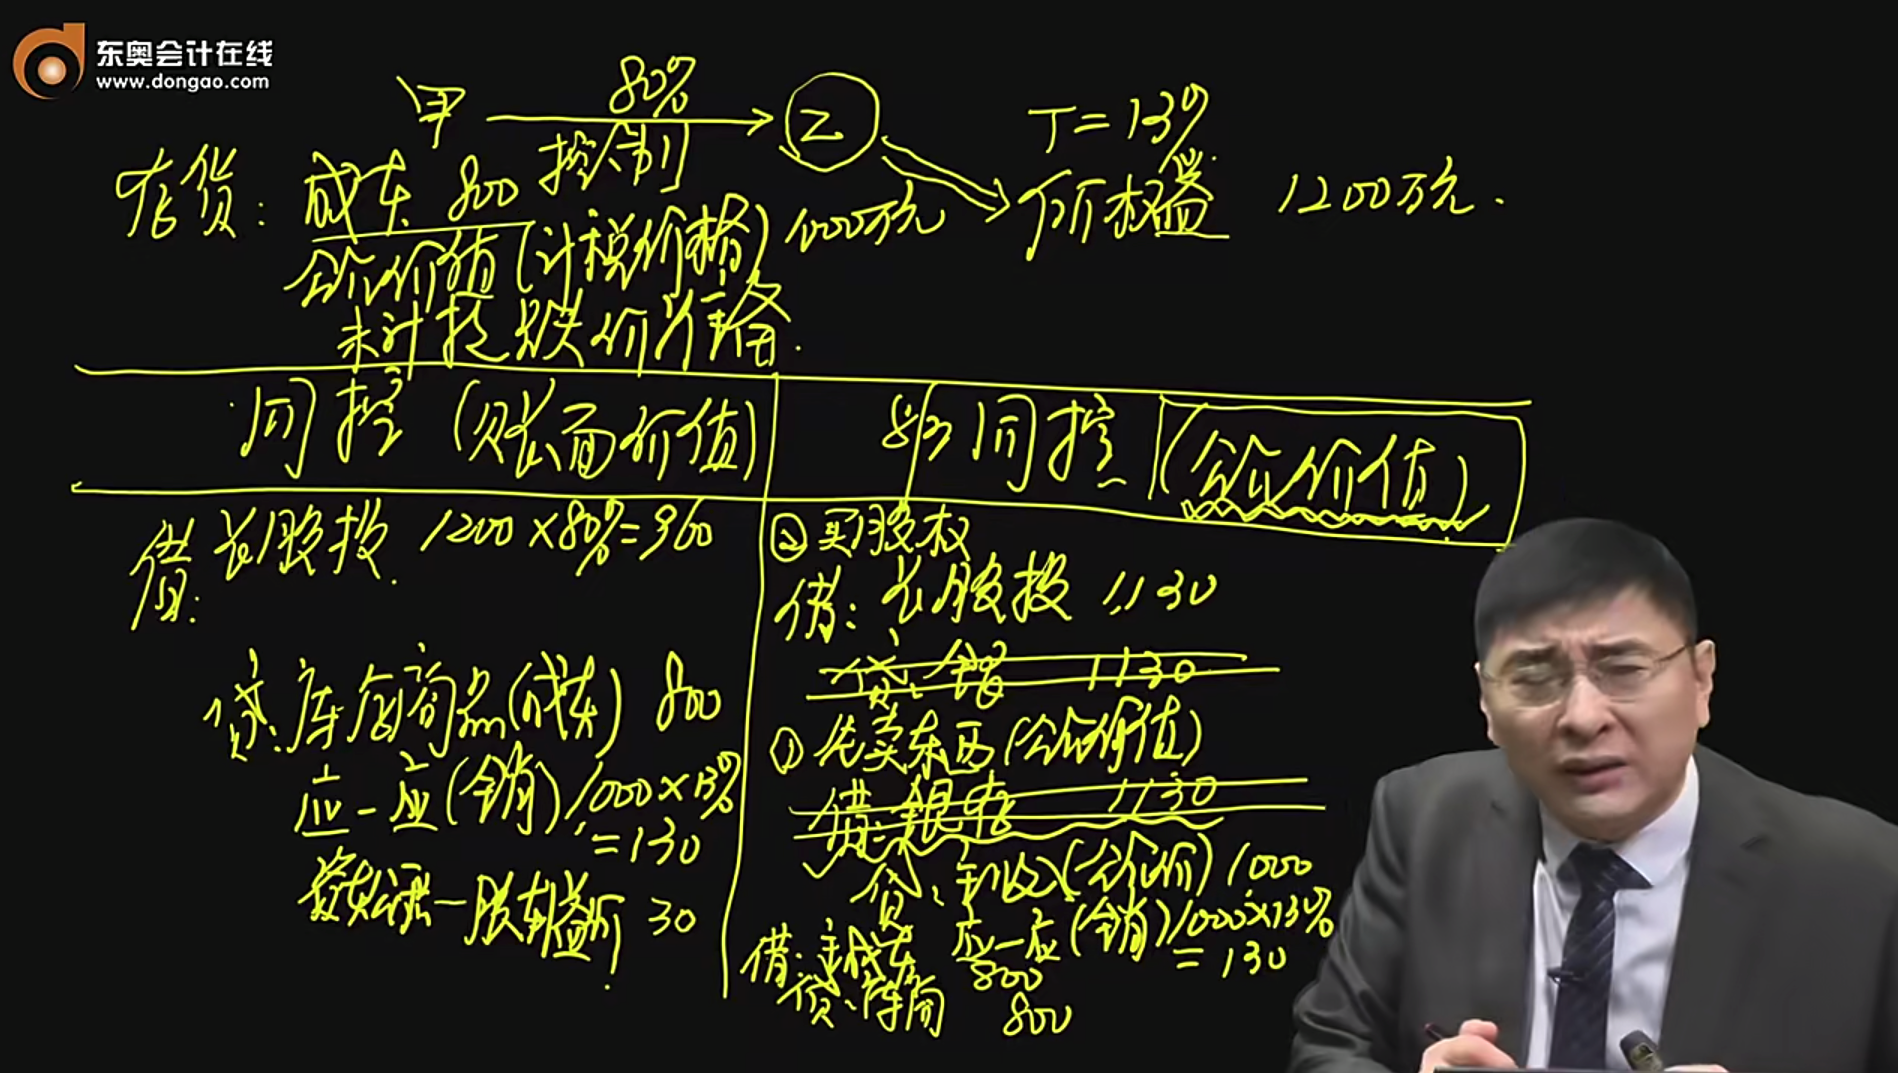 东奥会计在线
www.dongao.com
甲 80% 控制 乙 T=13%
存货: 成本 800
公允价值(计税价格) 1000万元 价权益 1200万元.
未计提跌价准备.
同控(账面价值)
非同控(公允价值)
借: 长股投 1200×80%=960
贷: 库存商品(成本) 800
应一应(销) 1000×13%
=130
资本公积一股本溢价 30
②买股权
借: 长股投 1130
贷: 银 1130
①先卖东西(公允价值)
借: 银存 1130
贷: 主收(公允价) 1000
应一应(销) 1000×13%
=130
借: 主成本 800
贷: 库商 800